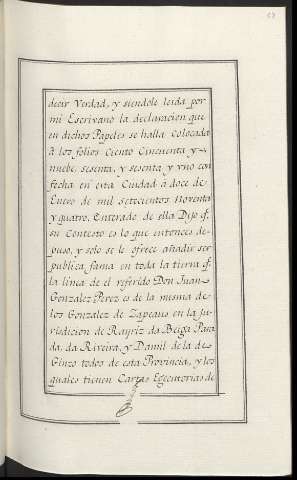 decir Verdad, y siendole leida por
mi Escrivano la declaracion que
en dichos Papeles se halla colocada
â los folios Ciento Cincuenta y
nuebe, sesenta, y sesenta y uno con
fecha en esta Ciudad â doce de
Enero de mil setecientos Noventa
y quatro, Enterado de ella Dijo q.
su Contesto es lo que entonces de-
puso, y solo se le ofrece añadir ser
publica fama en toda la tierra q.
la linea de el referido Don Juan
Gonzalez Perez es de la misma de
los Gonzalez de Zapeaus en la ju-
risdicion de Rayriz da Beiga Para
da, da Riveira, y Damil de la de
Ginzo todos de esta Provincia, y los
quales tienen Cartas Egecutorias de